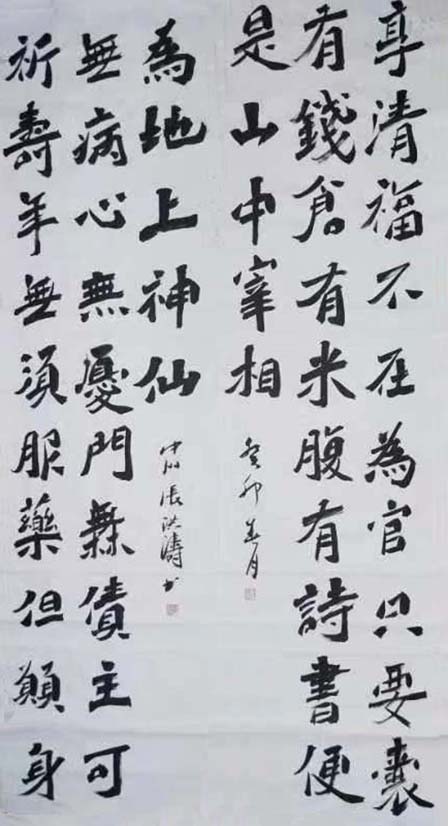 享清福不在為官只要囊
有錢倉有米腹有詩書便
是山中宰相
癸卯春月
祈壽年無須服藥但願身
無病心無憂門無債主可
為地上神仙
中州張洪濤书